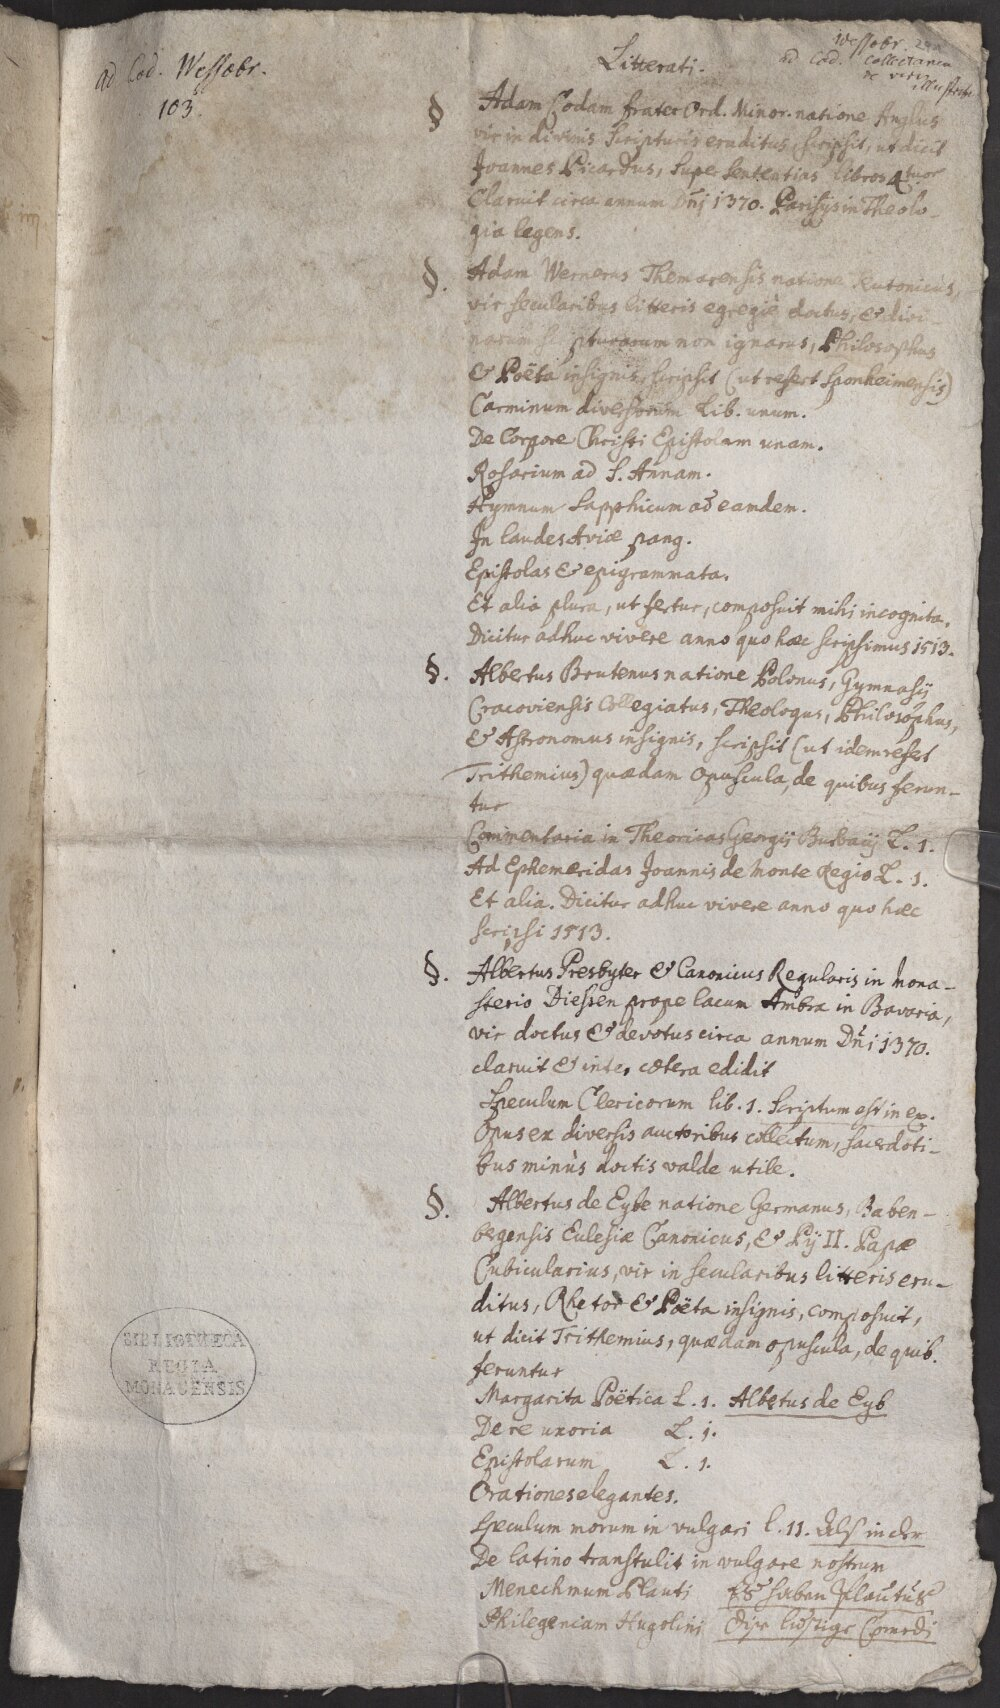 ad Cod. Wessobr.
103.
Wessobr.
ad Cod. Collectanea
de viris illustrib.
Litterati.
§ Adam Codam frater Ord. Minor. natione Anglus
vir in divinis Scripturis eruditus, scripsit, ut dicit
Joannes Picardus, super Sententias libros 4tuor
Claruit circa annum Dñi 1370. Parisijs in Theolo-
gia legens.
§. Adam Wernerus Themarensis natione Teutonicus,
vir secularibus litteris egregiè doctus, & divi-
narum scripturarum non ignarus, Philosophus
& Poëta insignis, scripsit (ut refert Sponheimensis)
Carminum diversorum Lib. unum.
De Corpore Christi Epistolam unam.
Rosarium ad S. Annam.
Hymnum Sapphicum ad eamdem.
In laudes Aviæ pang.
Epistolas & epigrammata.
Et alia plura, ut fertur, composuit mihi incognita.
Dicitur adhuc vivere anno quo hæc scripsimus 1513.
§. Albertus Brutenus natione Polonus, Gymnasij
Cracoviensis Collegiatus, Theologus, Philosophus,
& Astronomus insignis, scripsit (ut idem refert
Trithemius) quædam opuscula, de quibus ferun-
tur
Commentaria in Theoricas Georgij Burbaij L. 1.
Ad Ephemeridas Joannis de Monte Regio L. 1.
Et alia. Dicitur adhuc vivere anno quo hæc
scripsi 1513.
§. Albertus Presbyter & Canonicus Regularis in Mona-
sterio Diessen prope lacum Ambra in Bavaria,
vir doctus & devotus circa annum Dñi 1370.
claruit & inter cætera edidit
Speculum Clericorum lib. 1. Scriptum est in ex.
Opus ex diversis auctoribus collectum, sacerdoti-
bus minùs doctis valde utile.
§. Albertus de Eybe natione Germanus, Baben-
bergensis Eulesiæ Canonicus, & Pij II. Papæ
Cubicularius, vir in secularibus litteris eru-
ditus, Rhetor & Poëta insignis, composuit,
ut dicit Trithemius, quædam opuscula, de quib.
feruntur
Margarita Poëtica L. 1. Albertus de Eyb
De re uxoria L. 1.
Epistolarum L. 1.
Orationes elegantes.
Speculum morum in vulgari l. 11. Als in der
De latino transtulit in vulgare nostrum
Menechmum Plauti Es haben Plautus
Philegeniam Hugolini Comedi
BIBLIOTHECA
REGIA
MONACENSIS